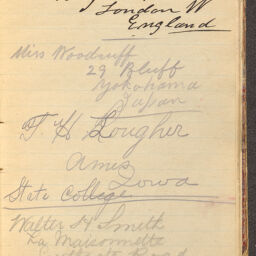 London W
England
Miss Woodruff
29 Bluff
Yokohama
Japan
T. H. Lougher
Ames
Iowa
State College
Walter H Smith
La Maisonnette
Road